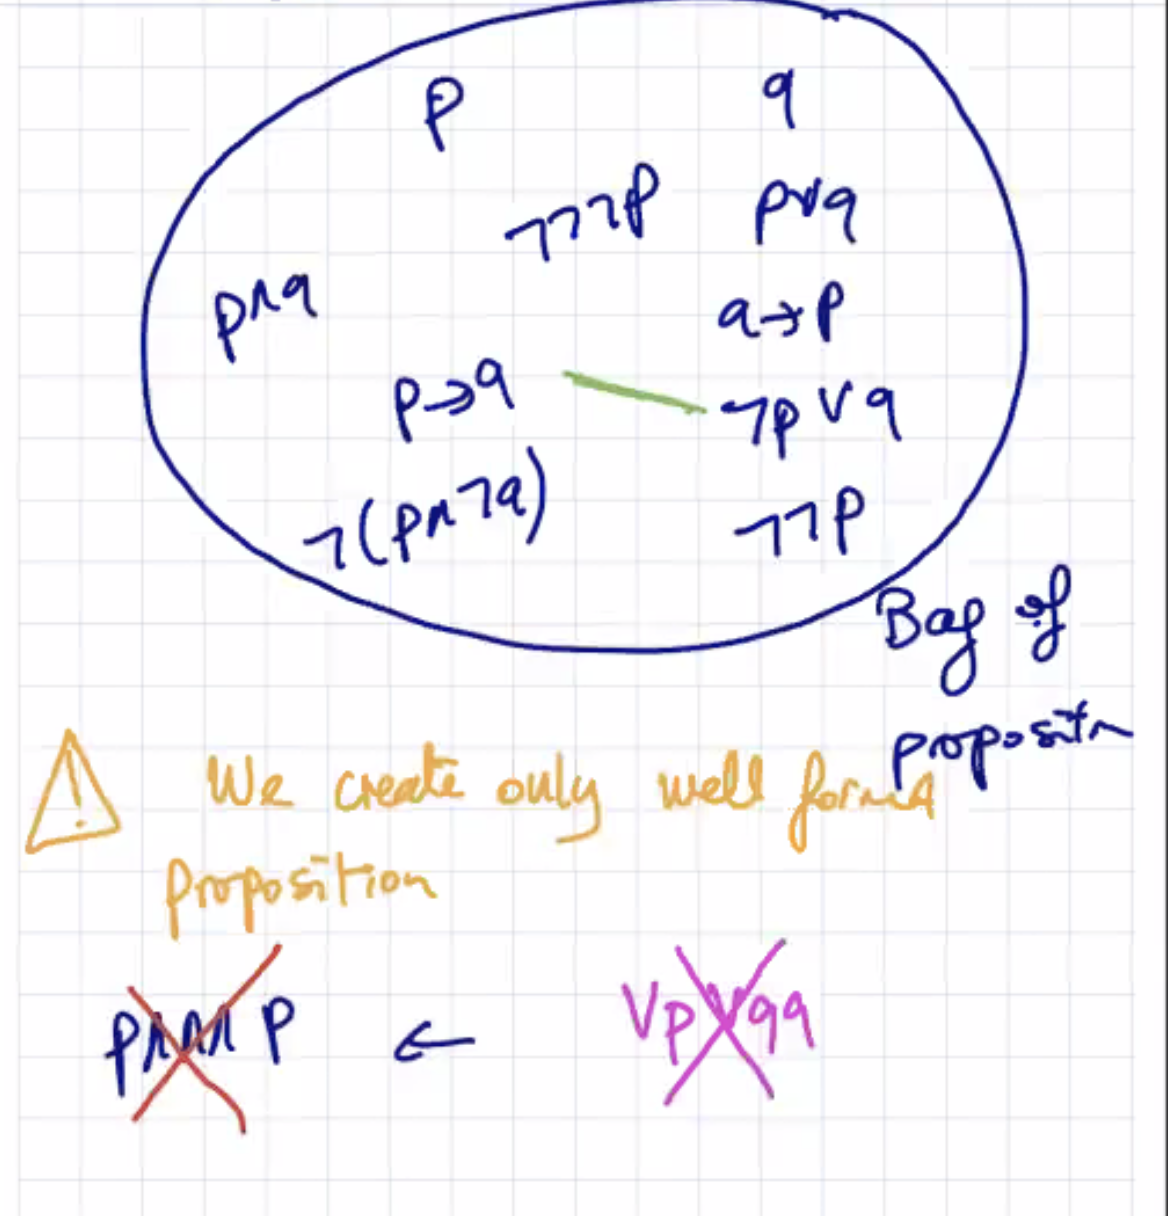 p q
¬¬¬p p∨q
p∧q q→p
p→q ¬p∨q
¬(p∧¬q) ¬¬p
Bag of
propositn
! We create only well formed
proposition
p∧∧∧p ← ∨p∨qq